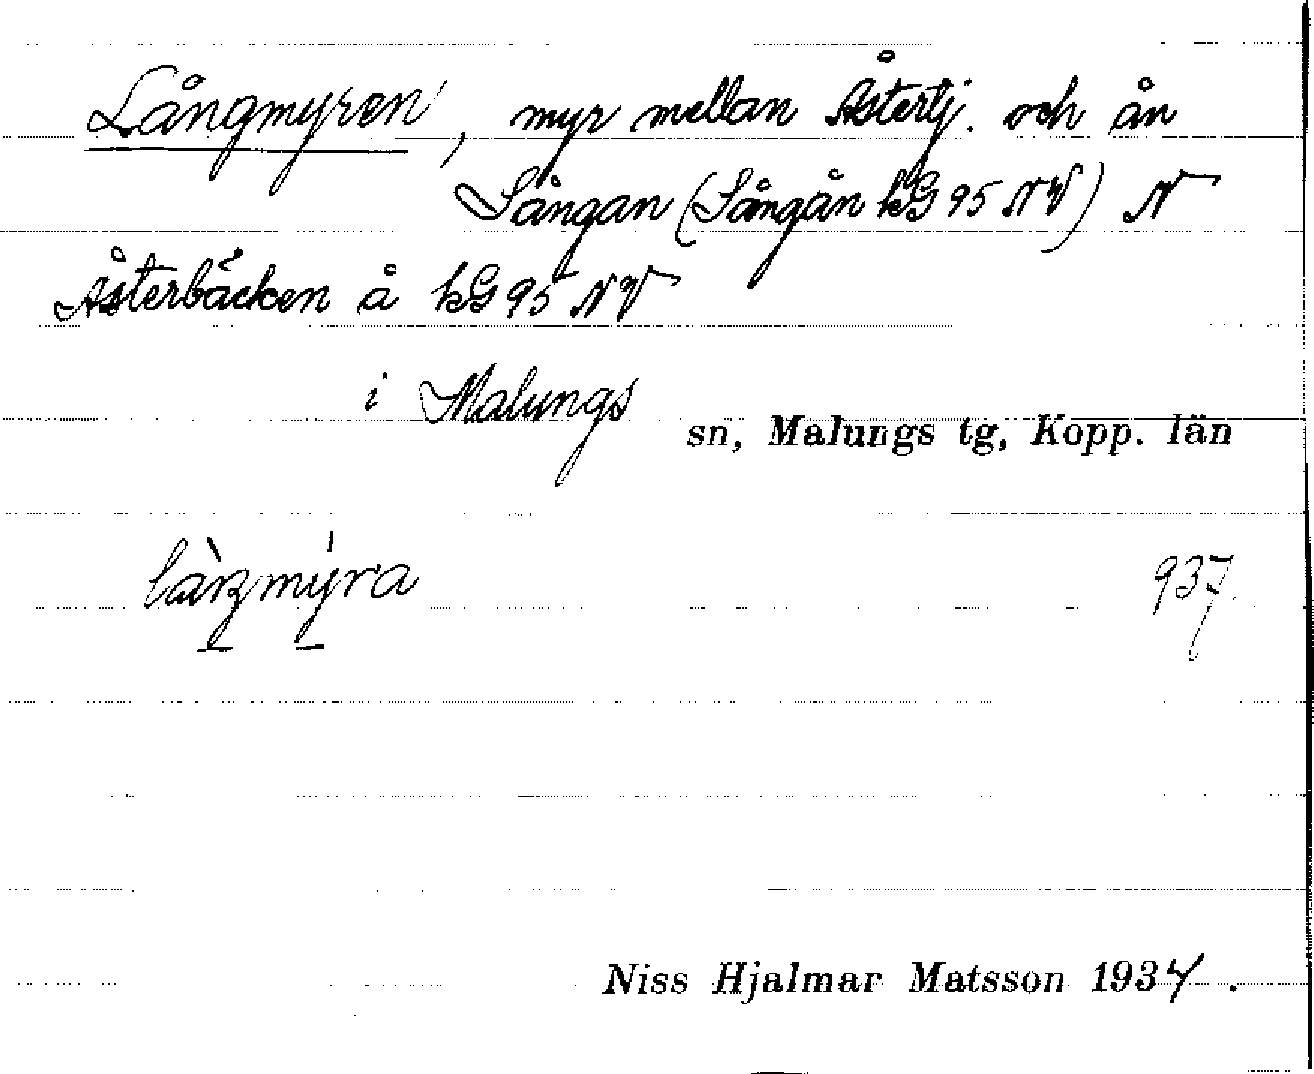 Långmyren, myr mellan Åstertj. och ån
Sångan (Sångån kG 95 NV) N
Åsterbäcken å kG 95 NV
i Malungs sn, Malungs tg, Kopp. län
937.
Niss Hjalmar Matsson 1937.